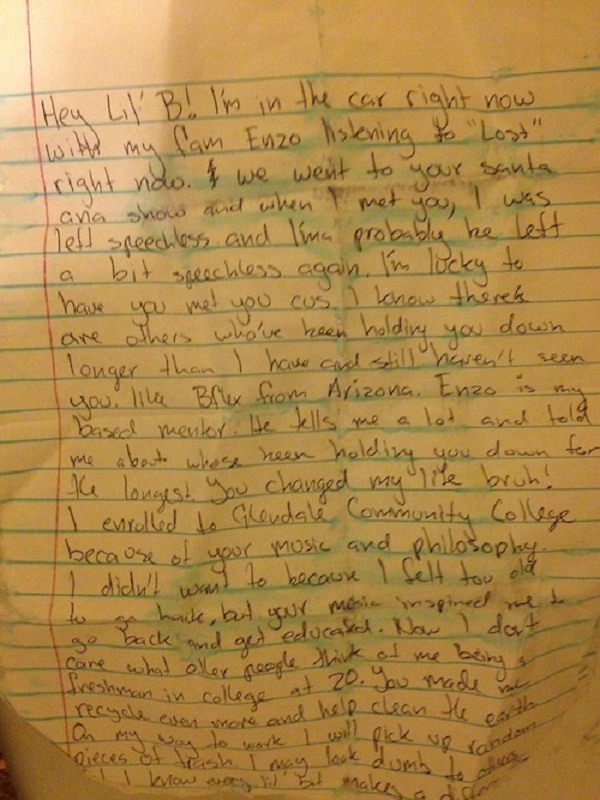 Hey Lil' B! I'm in the car right now
with my fam Enzo listening to "Lost"
right now. & we went to your santa
ana show and when I met you, I was
left speechless and I'ma probably be left
a bit speechless again. I'm lucky to
have you met you cus I know there's
are others who've been holding you down
longer than I have and still haven't seen
you. like Bflex from Arizona. Enzo is my
based mentor. He tells me a lot and told
me about whose been holding you down for
the longest. You changed my life bruh!
I enrolled to Glendale Community College
because of your music and philosophy.
I didn't want to because I felt too old
to go back, but your music inspired me to
go back and get educated. Now I don't
care what other people think of me being a
freshman in college at 20. You made me
recycle even more and help clean the earth
On my way to work I will pick up random
pieces of trash I may look dumb to others
I know every lil' bit makes a